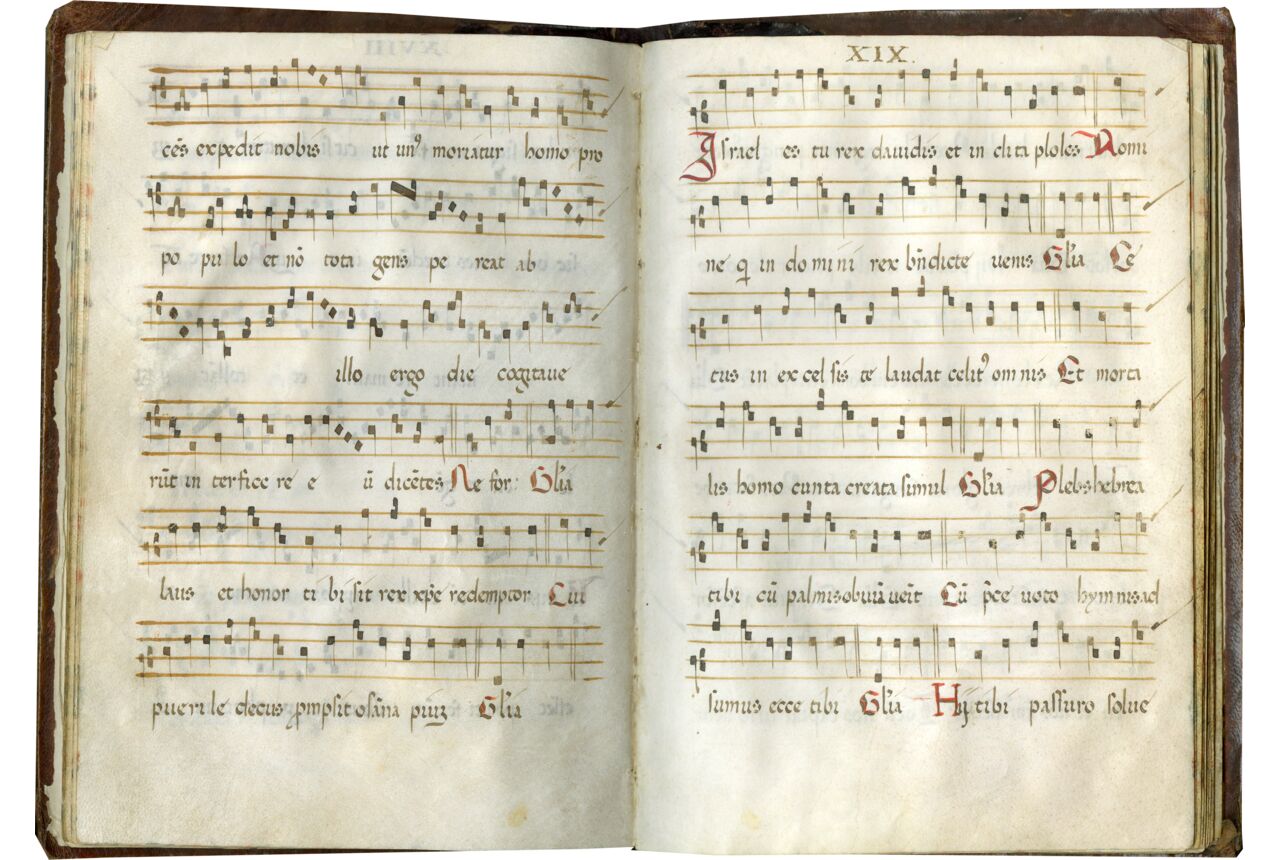 cēs expedit nobis ut unꝰ moriatur homo pro
po pu lo et nō tota gens pe reat ab
illo ergo die cogitaue
rūt in terfice re e ū dicētes Ne for: Gl'ia
laus et honor ti bi sit rex xp̄e redemptor Cui
pueri le decus ꝓmpsit osāna piuꝫ Gl'ia
XIX.
Israel es tu rex dauidis et in cli ta ploles Nomi
ne q in do mi ni rex bn̄dicte uenis Gl'ia Ce
tus in ex cel sis te laudat celitꝰ om nis Et morta
lis homo cunta creata simul Gl'ia Plebs hebrea
tibi cū palmis obuia ueit Cū p̄ce uoto hymnis ad
sumus ecce tibi Gl'ia Hij tibi passuro solue